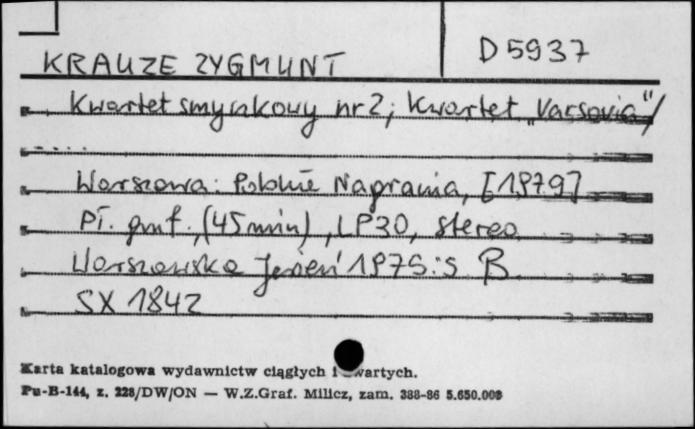 KRAUZE ZYGMUNT
D 5937
Kwartet smyczkowy nr 2; Kwartet „Varsovia"/
.....
Warszawa: Polskie Nagrania, [1979]
Pł. gmf., (45 min), LP30, stereo
Warszawska Jesień 1975: s B
SX 1842
Karta katalogowa wydawnictw ciągłych i zwartych.
Pu-B-144, z. 228/DW/ON — W.Z.Graf. Milicz, zam. 388-86 5.650.000